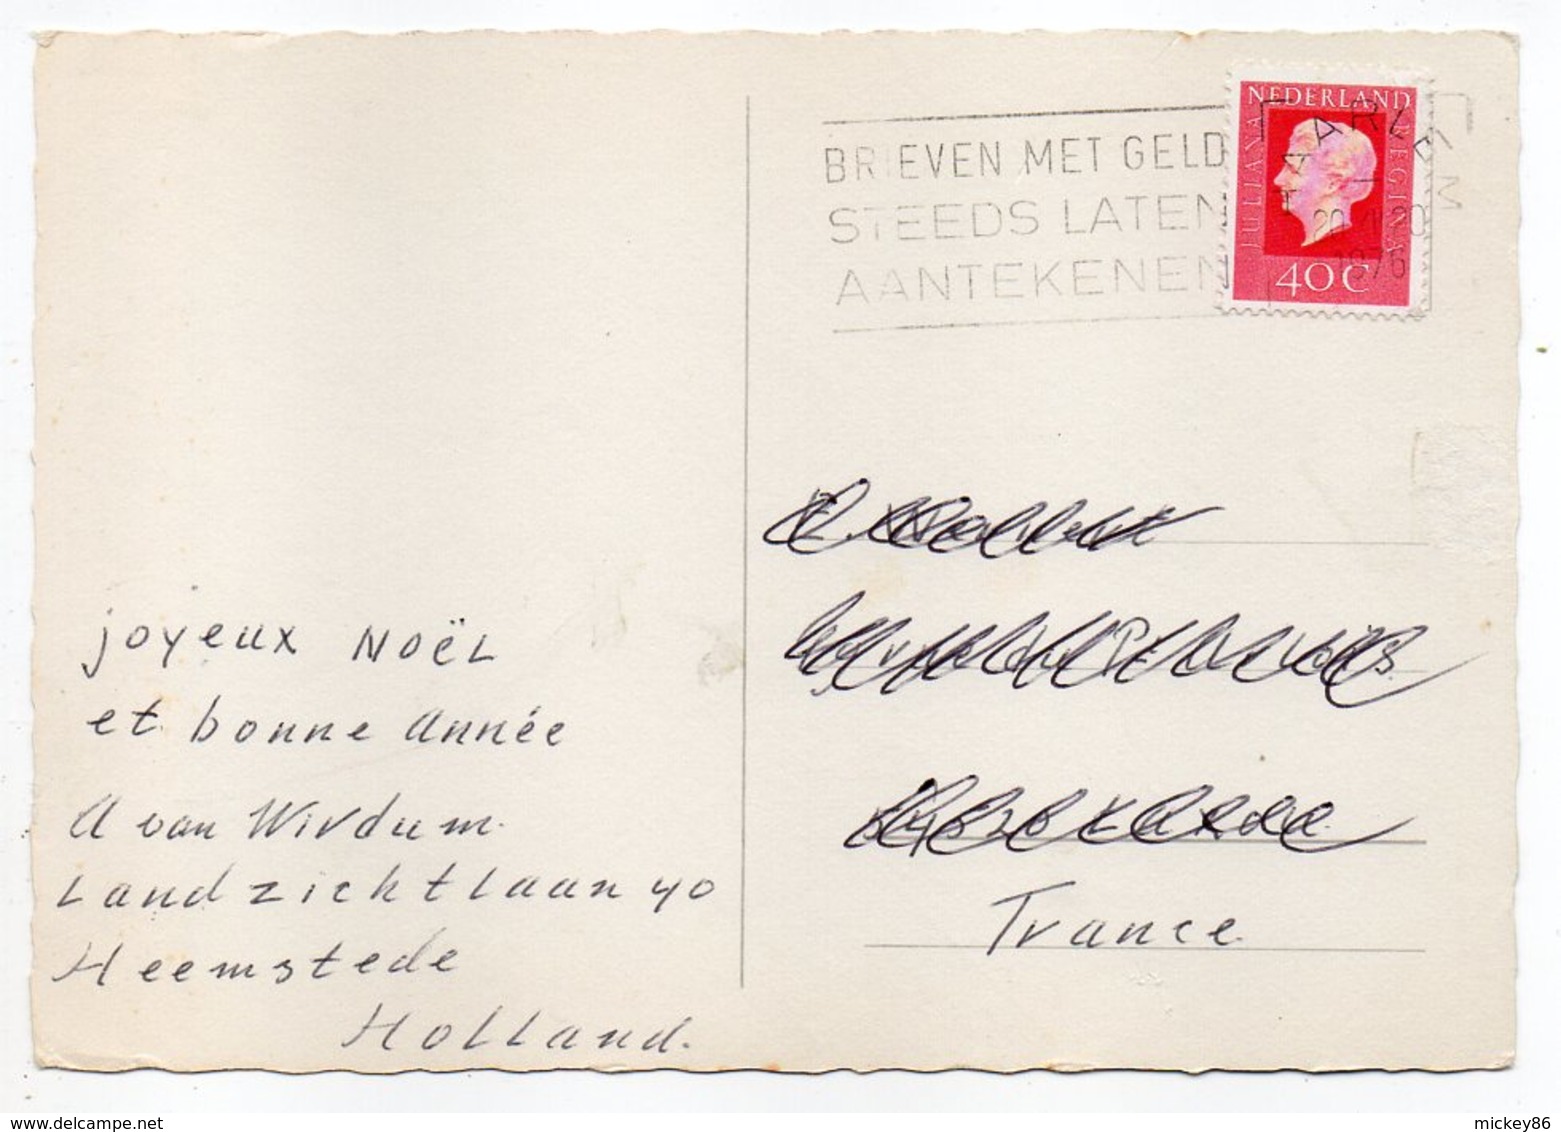 BRIEVEN MET GELD
STEEDS LATEN
AANTEKENEN
NEDERLAND
JULIANA REGINA
40 C
HAARLEM
1976
joyeux Noël
et bonne année
A van Wirdum.
Landzichtlaan 40
Heemstede
Holland.
France
www.delcampe.net
mickey86